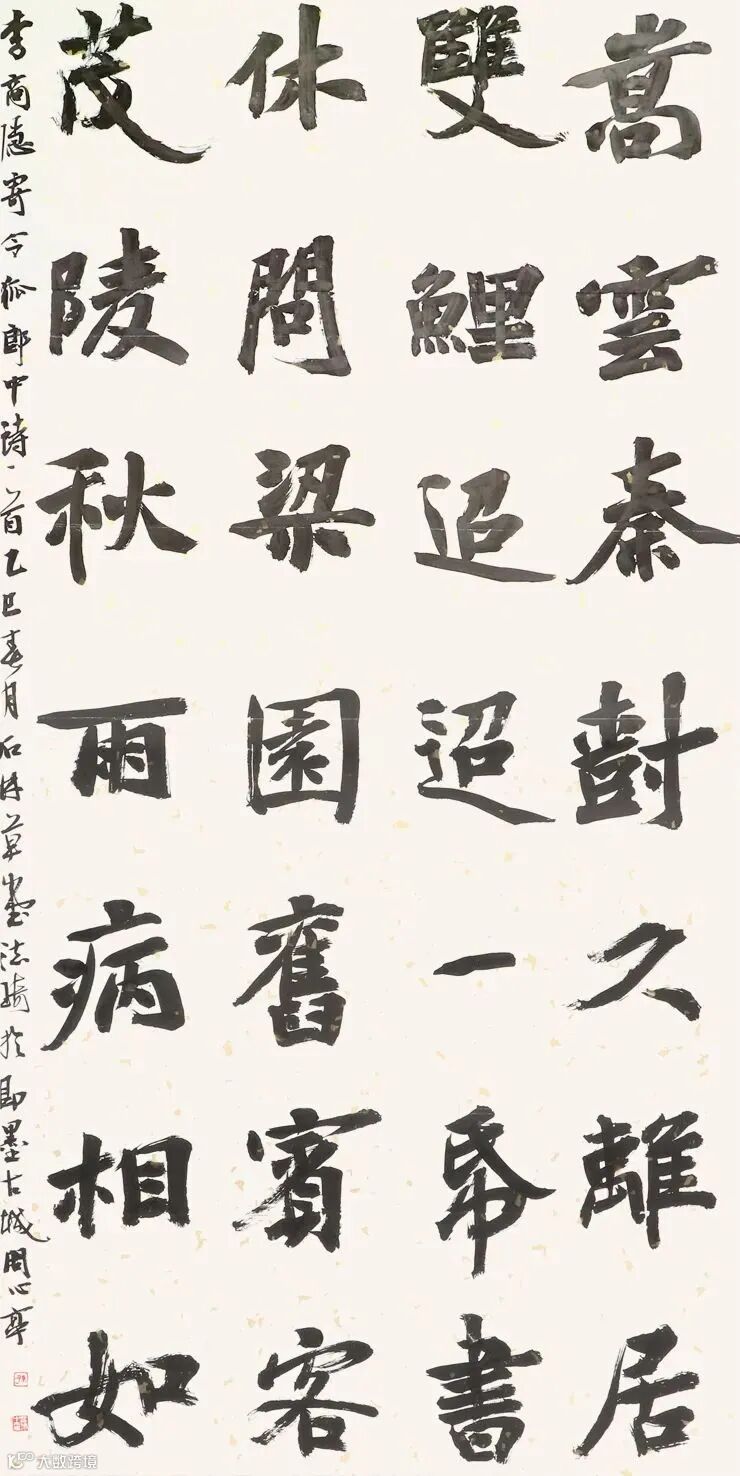 嵩雲秦樹久離居
雙鯉迢迢一帋書
休問梁園舊賓客
茂陵秋雨病相如
李商隱寄令狐郎中詩一首乙巳春月石草堂法於即墨古城問心亭
大数跨境